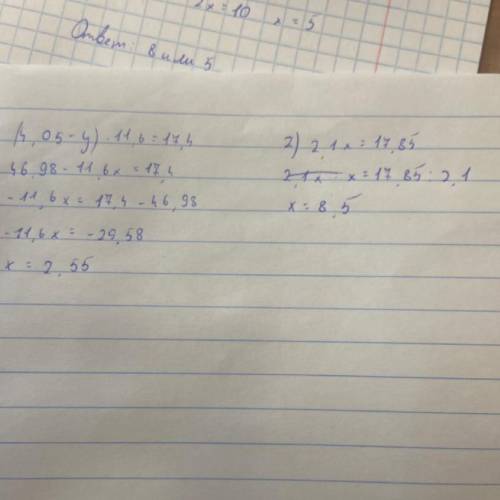 2x = 10 x = 5
Ответ: 8 или 5
(4,05 - y) · 11,6 = 17,4
46,98 - 11,6x = 17,4
-11,6x = 17,4 - 46,98
-11,6x = -29,58
x = 2,55
2) 2,1x = 17,85
x = 17,85 : 2,1
x = 8,5